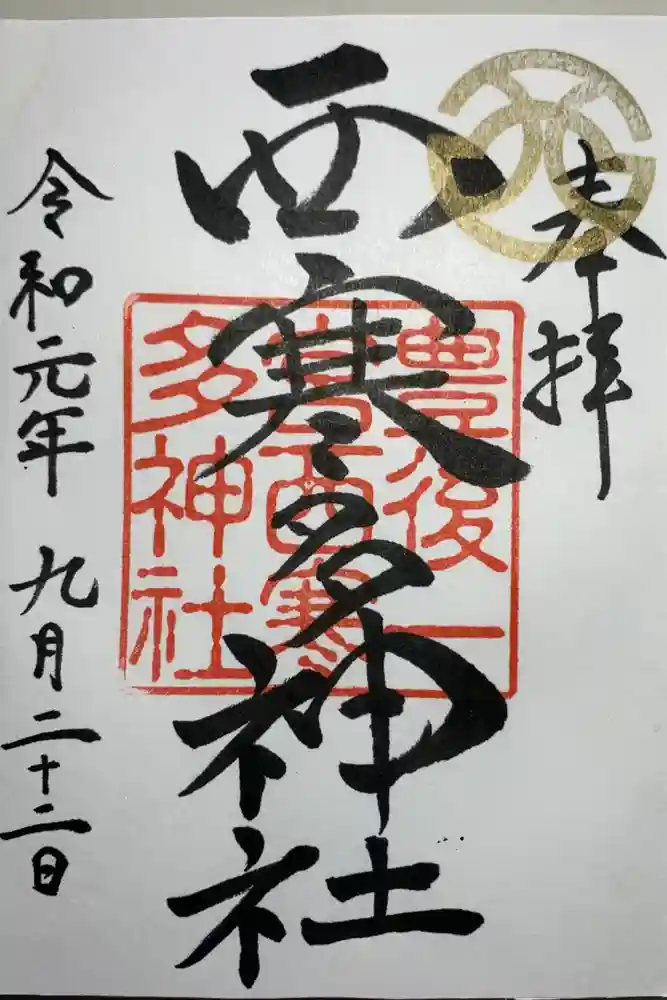 奉拝
西寒多神社
豊後一
宮西寒
多神社
令和元年九月二十二日